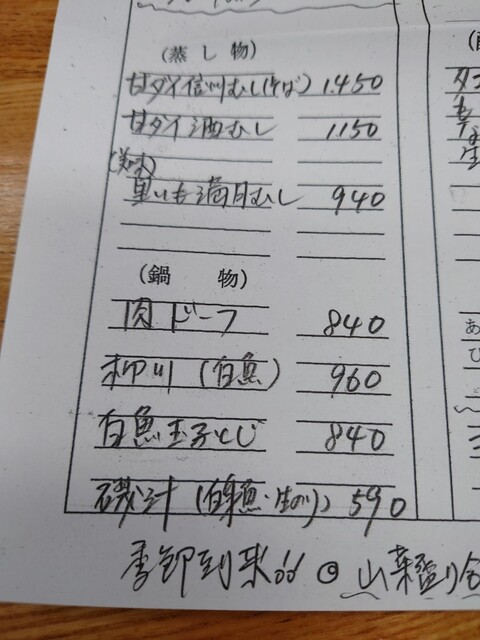 (蒸し物)
甘ダイ信州むし(そば) 1.450
甘ダイ酒むし 1150
(美味)
里いも満月むし 940
(鍋 物)
肉ドーフ 840
柳川 (白魚) 960
白魚玉子とじ 840
磯汁 (白身魚・生のり) 590
季節到来!! ◎ 山菜盛り合
タコ
生
あ
ひ